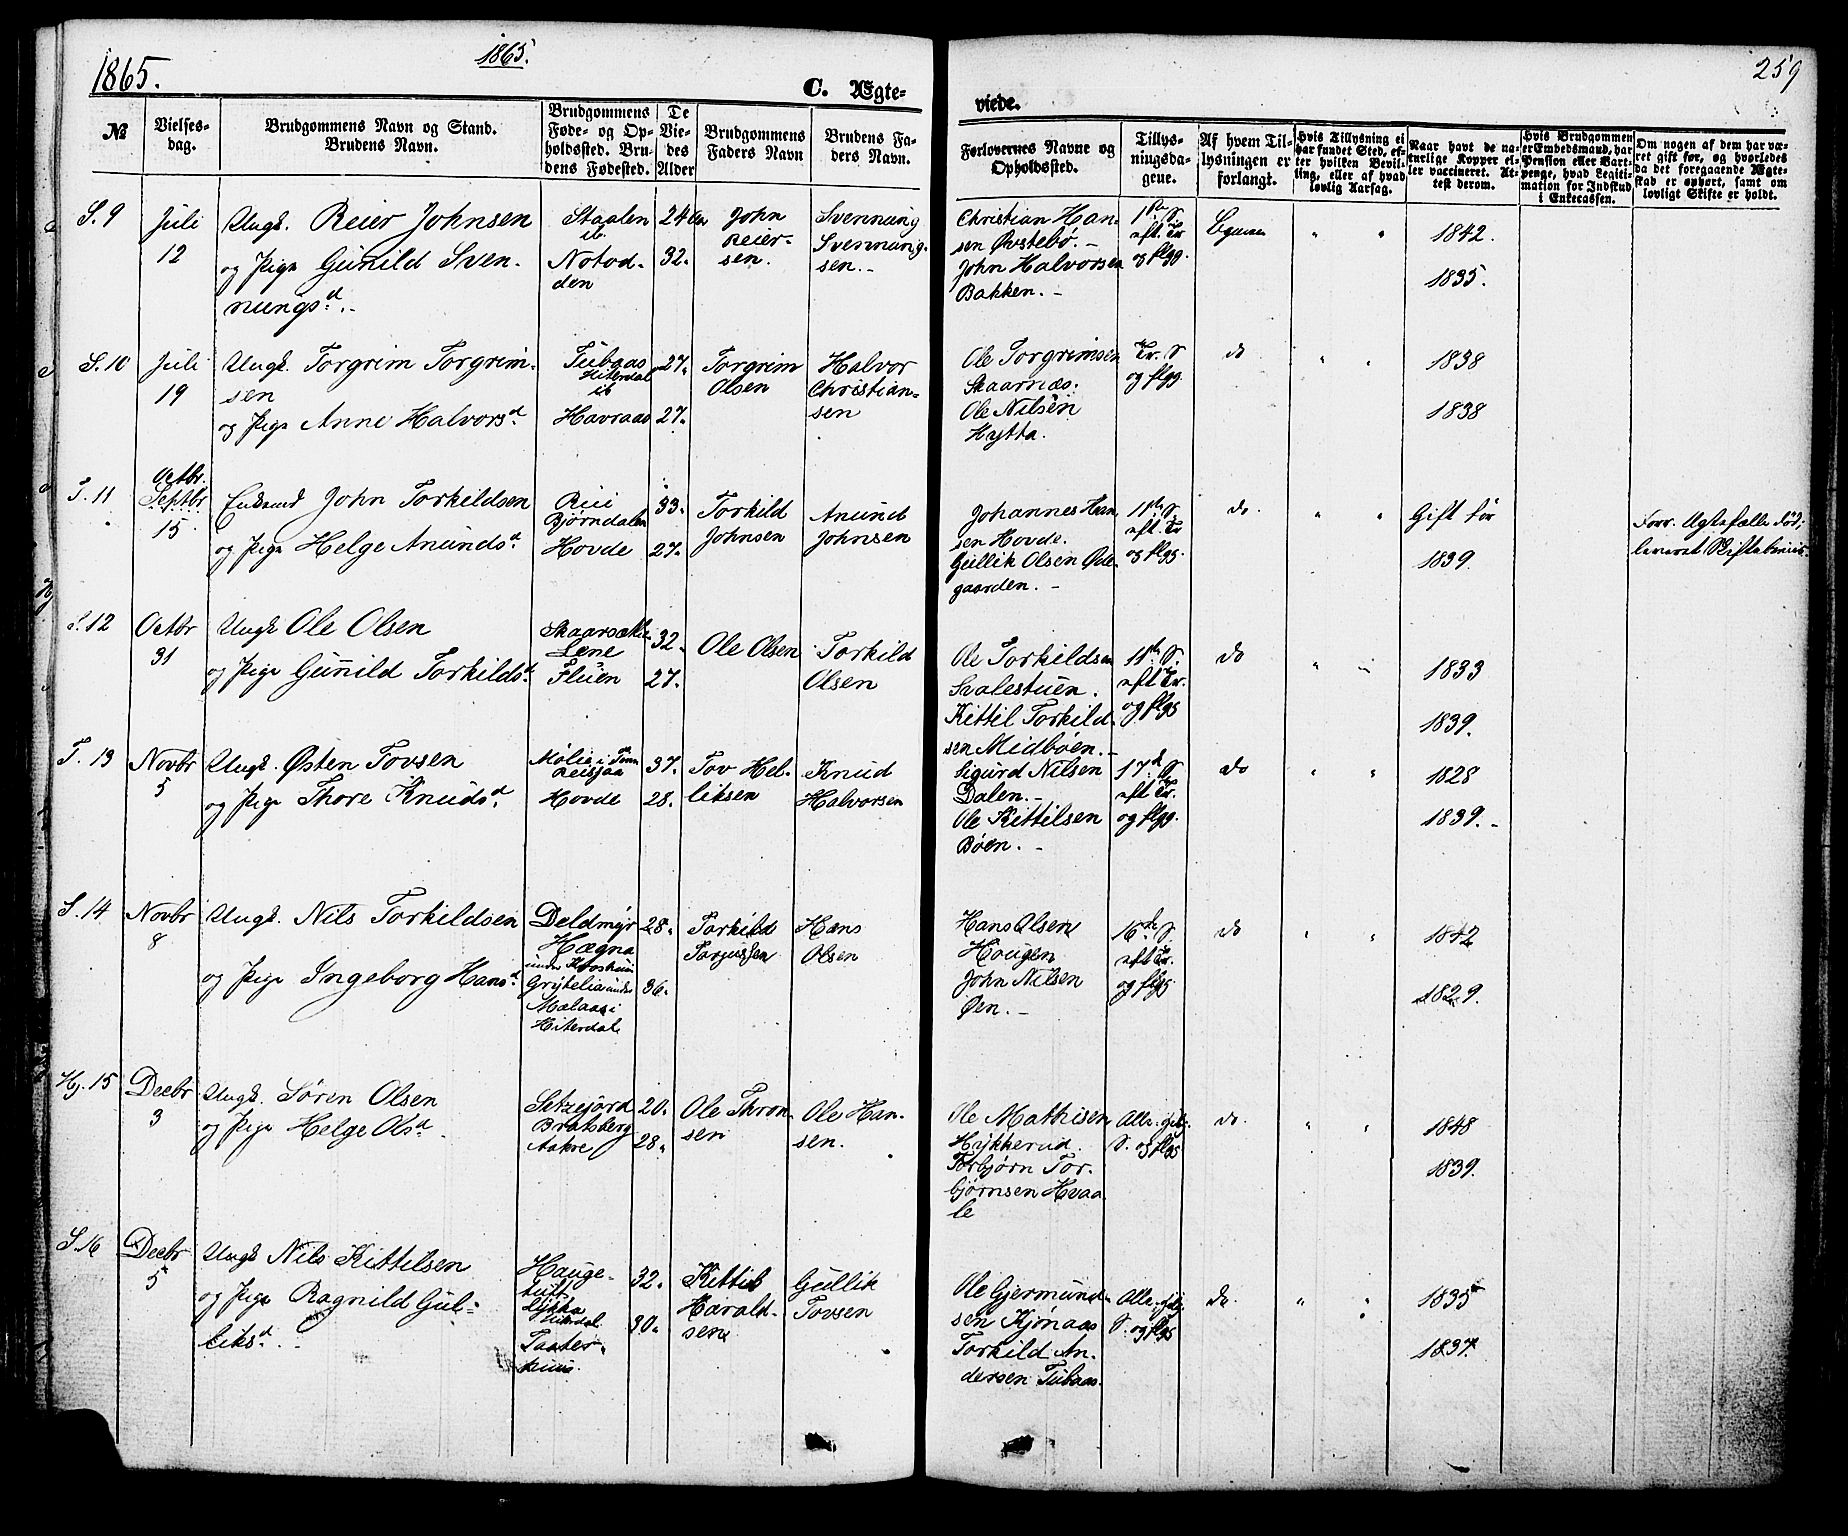 1865.
1865.
259
C. Ægte-
viede.
№
Vielses-
dag.
Brudgommens Navn og Stand.
Brudens Navn.
Brudgommens
Føde- og Op-
holdssted. Bru-
dens Fødested.
De
Vie-
des
Alder
Brudgommens
Faders Navn
Brudens Fa-
ders Navn.
Forlovernes Navne og
Opholdssted.
Tillys-
ningsda-
gene.
Af hvem Til-
lysningen er
forlangt.
Hvis Tillysning ei
har fundet Sted, ef-
ter hvilken Bevil-
ling, eller af hvad
lovlig Aarsag.
Naar havt de na-
turlige Kopper el-
ler vaccineret. At-
test derom.
Hvis Brudgommen
er Embedsmand, har
Pension eller Vart-
penge, hvad Legiti-
mation for Indskud
i Enkecassen.
Om nogen af dem har væ-
ret gift før, og hvorledes
da det foregaaende Ægte-
skab er ophørt, samt om
lovligt Skifte er holdt.
S. 9
Juli
12
Ungk. Reier Johnsen
og Pige Gunild Sven-
nungsd.-
Staalen
ib
Notod-
den
24
32.
John
Reier-
sen.
Svennung
Svennung-
sen.-
Christian Han-
sen Øvstebø.-
John Halvorsen
Bakken.-
1ste S.
eft. Tr
og flgg.
" "
1842.
1835.
S. 10
Juli
19
Ungk. Torgrim Torgrim-
sen
og Pige Anne Halvorsd.
Tubaas
Hiterdal
ib
Havraas
27.
27.
Torgrim
Olsen
Halvor
Christian-
sen
Ole Torgrimsen
Skaarnæs.
Ole Nilsen
Hytta.
Tr. S
og flgg.
do
" "
1838
1838
T. 11
Octbr.
Septbr
15
Enkemd John Torkildsen
og Pige Helge Anundsd.
Rui
Bjørndalen
Hovde
33.
27.
Torkild
Johnsen
Anund
Johnsen
Johannes Han-
sen Hovde.
Gullik Olsen Øde-
gaarden.-
11te S.
eft. Tr
og flgg.
do.
" "
Gift før
1839.
Forr. Ægtefælle død;
leveret Skiftebeviis.
S. 12
Octbr
31
Ungk Ole Olsen
og Pige Gunild Torkildsd.
Lene
Fluen
32.
27.
Ole Olsen
Torkild
Olsen
Ole Torkildsen
Svalestuen.
Kittil Torkild-
sen Midbøen.-
11te S.
eft Tr.
og flgg
do
" "
1833
1839.
T. 13
Novbr
5
Ungk. Østen Tovsen
og Pige Thore Knudsd.
Hovde
37.
28.
Tov Hel-
liksen
Knud
Halvorsen
Sigurd Nilsen
Dalen.-
Ole Kittilsen
Bøen.-
17d S.
eft Tr.
og flgg.
do
" "
1828
1839.-
S. 14
Novbr
8
Ungk. Nils Torkildsen
og Pige Ingeborg Hansd.
Deldmyr
Hægna
under
Grytelia under
Mælaas i
Hiterdal
28.
36.
Torkild
Torjussen
Hans
Olsen
Hans Olsen
Hougen
John Nilsen
Øen.-
16de S.
eft Tr.
og flgg.
do
" "
1842
1829.
Hj. 15
Decbr
3
Ungk. Søren Olsen
og Pige Helge Olsd.
Setzejord
Bratsberg
Aakre
20.
28.
Ole Thron-
sen
Ole Han-
sen.
Ole Mathisen
Hykkerud.
Torbjørn Tor-
bjørnsen Hvaa-
le
Alle-helg.
S. og flgg
do.
" "
1848
1839.
S. 16
Decbr
5
Ungk Nils Kittilsen
og Pige Ragnild Gul-
liksd.-
Hauge-
tuft
Lykka
Hiterdal
Taater-
huus.
32.
30.
Kittil
Harald-
sen
Gullik
Tovsen
Ole Gjermund-
sen Kjønaas
Torkild An-
dersen Tubaas.
Alle-helg
S. og flgg
do.
" "
1835
1837.